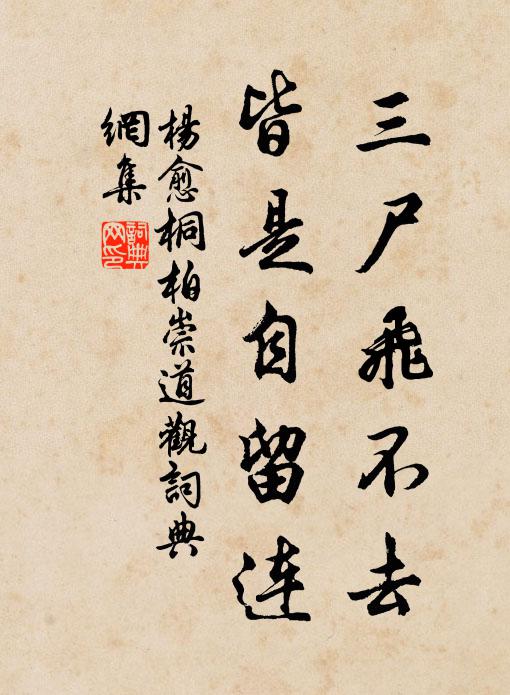 三尸飛不去
皆是自留連
楊愈桐柏崇道觀詞典
網集
詞典
网印